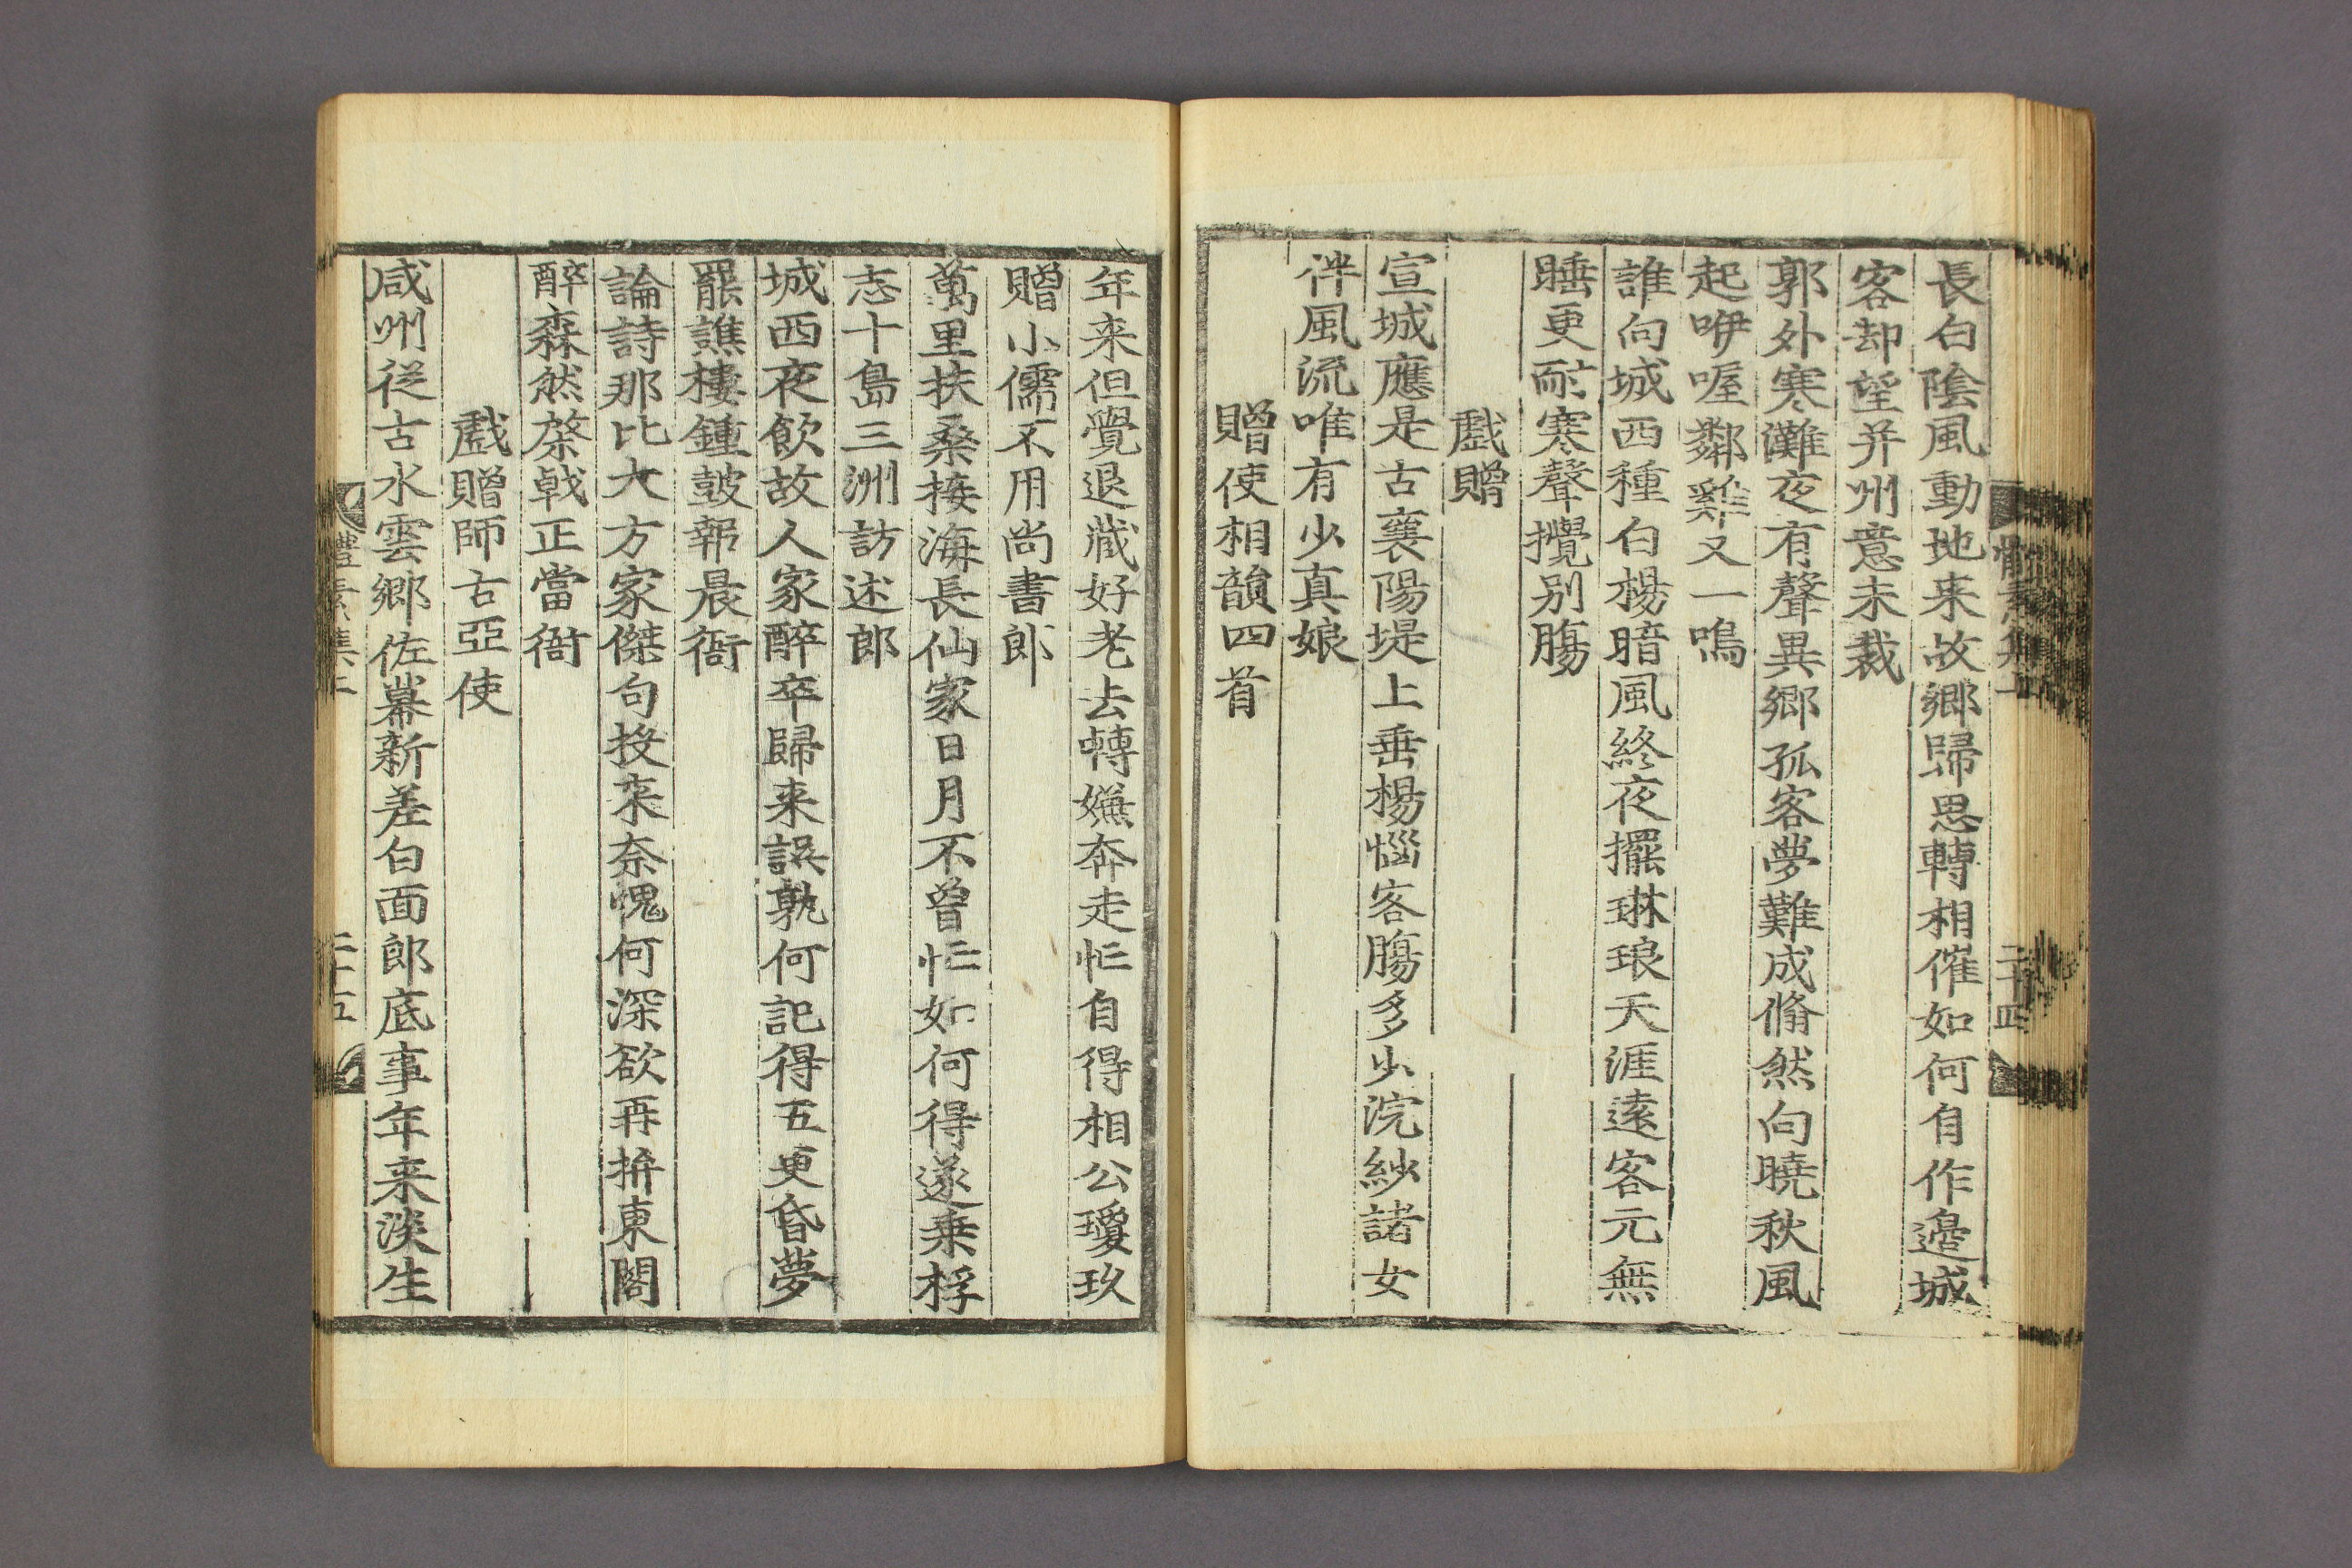 長白陰風動地来故郷歸思轉相催如何自作邉城
客却望并州意未裁
郭外寒灘夜有聲異郷孤客夢難成翛然向曉秋風
起咿喔鄰雞又一鳴
誰向城西種白楊暗風終夜擺琳琅天涯遠客元無
睡更耐寒聲攪别膓
戱贈
宣城應是古襄陽堤上垂楊惱客膓多少浣紗諸女
伴風流唯有少真娘
贈使相韻四首
年来但覺退藏好老去轉嫌奔走忙自得相公瓊玖
贈小儒不用尚書郎
萬里扶桑接海長仙家日月不曾忙如何得遂乗桴
志十島三洲訪述郎
城西夜飲故人家醉卒歸来誤孰何記得五更昏夢
罷譙樓鍾皷報晨衙
論詩那比大方家傑句投来奈愧何深欲再拚東閣
醉森然棨戟正當衙
戱贈師古亞使
咸州從古水雲郷佐幕新差白面郎底事年来淡生
體素集上
二十五